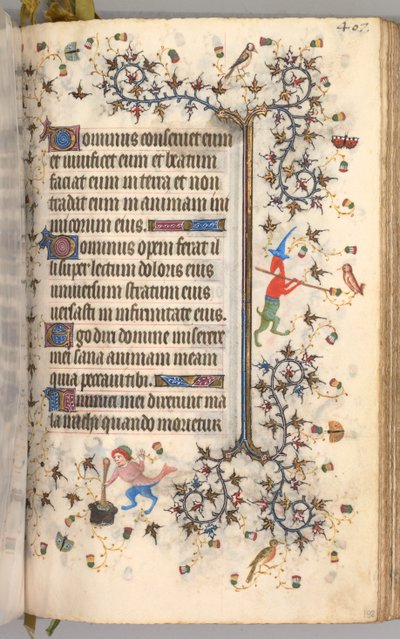 402
Dominus conseruet eum
et uiuificet eum et beatum
faciat eum in terra et non
tradat eum in animam ini
micorum eius.
Dominus opem ferat il
li super lectum doloris eius
uniuersum stratum eius
uersasti in infirmitate eius.
Ego dixi domine miserere
mei sana animam meam
quia peccaui tibi.
Inimici mei dixerunt ma
la michi quando morietur
198